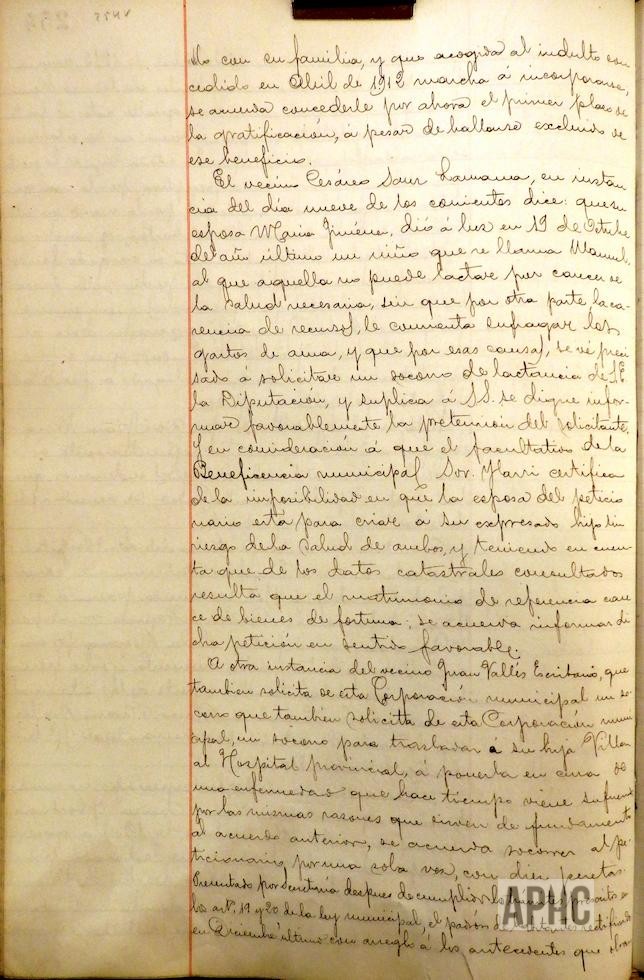 No con su familia, y que acogido al indulto con
cedido en Abril de 1912 marcha á incorporarse,
se acuerda concederle por ahora el primer plazo de
la gratificación, a pesar de hallarse excluido de
ese beneficio.
El vecino Cesáreo Sanz Lamana, en instan
cia del dia nueve de los corrientes dice: que su
esposa Maria Jiménez, dió á luz en 19 de Octubre
del año último un niño que se llama Manuel,
al que aquella no puede lactar por carecer de
la salud necesaria, sin que por otra parte la ca-
rencia de recursos, le consienta sufragar los
gastos de ama, y que por esas causas, se vé preci
sado á solicitar un socorro de lactancia de S.E.
la Diputación, y suplica á S.S. se digne infor-
mar favorablemente la pretension del solicitante.
Y en consideración á que el facultativo de la
Beneficencia municipal Sor. certifica
de la imposibilidad en que la esposa del peticio
nario está para criar á su expresado hijo sin
riesgo de la salud de ambos, y teniendo en cuen
ta que de los datos catastrales consultados
resulta que el matrimonio de referencia care
ce de bienes de fortuna; se acuerda informar di
cha petición en sentido favorable.
A otra instancia del vecino Juan Vallés Escritano, que
tambien solicita de esta Corporación municipal un so-
corro que tambien solicitta de esta Corporación muni
cipal, un socorro para trasladar á su hija
al Hospital provincial, á ponerla en cura de
una enfermedad que hace tiempo viene sufriendo
por las mismas razones que sirven de fundamento
al acuerdo anterior, se acuerda socorrer al pe-
ticionario, por una sola vez, con diez pesetas.
Presentado por Secretaría despues de cumplidos los trámites prescritos en
los arts. 19 y 20 de la ley municipal, el padrón de habitantes rectificado
en Diciembre último con arreglo á los antecedentes que obra
VNT5
234
APHC